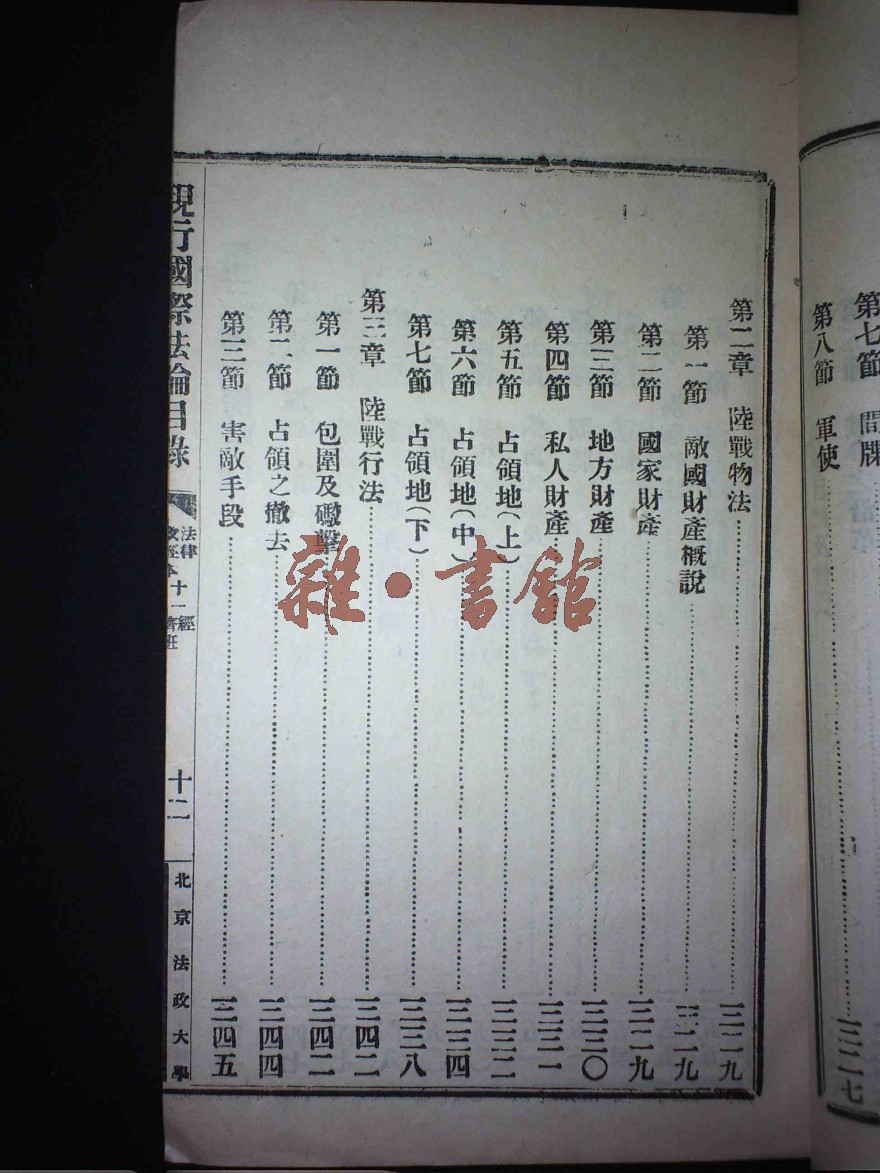 第七節 間牒
第八節 軍使……三二七
第二章 陸戰物法……三二九
第一節 敵國財產概說……三二九
第二節 國家財產……三二九
第三節 地方財產……三三〇
第四節 私人財產……三三一
第五節 占領地(上)……三三二
第六節 占領地(中)……三三四
第七節 占領地(下)……三三八
第三章 陸戰行法……三四二
第一節 包圍及礮擊……三四二
第二節 占領之撤去……三四四
第三節 害敵手段……三四五
現行國際法論目錄
法律
十一
經
十二
北京法政大學
雜·書館